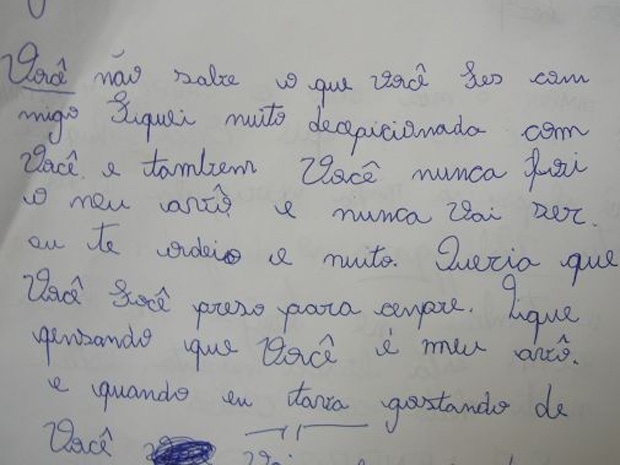 Você não sabe o que você fes com
migo Fiquei muito decepicionada com
você. e tambem Você nunca foi
o meu avô e nunca vai ser.
eu te ordeio e muito. Queria que
Você focê preso para cenpre. Fique
pensando que Você é meu avô.
e quando eu tava gostando de
Você